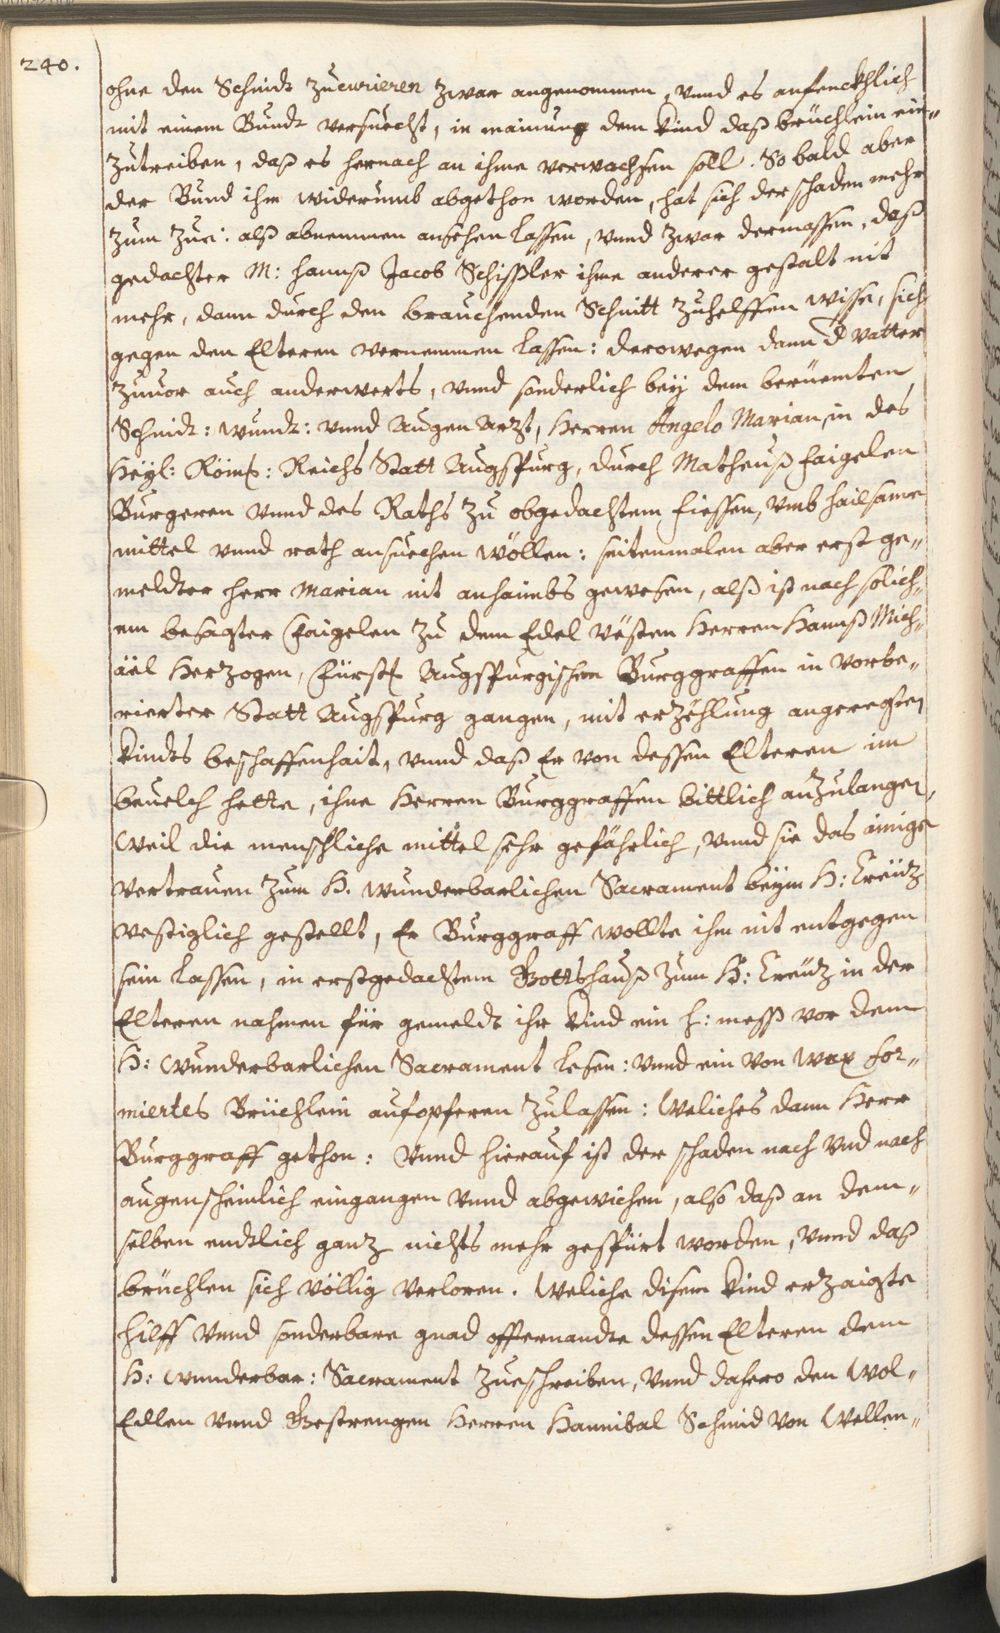 240.
ohne den Schnidt zu curieren zwar angenommen, vnnd es anfenckhlich
mit einem Bundt versuecht, in mainung dem kind daß brüchlein ein„
zutreiben, daß es hernach an ihme verwachsen soll. So bald aber
der Bund ihm widerumb abgethon worden, hat sich der schaden mehr
zum zue: alß abnemmen ansehen lassen, vnnd zwar dermassen, daß
gedachter M: Hannß Jacob Schißler ihme anderer gestalt nit
mehr, dann durch den brauchenden Schnitt zuhelffen wisse, sich
gegen den Elteren vernemmen lassen: derowegen dann d Vatter
zuuor auch anderwerts, vnnd sonderlich beÿ dem berüemten
Schnidt: Wundt: vnnd Augen Arzt, Herren Angelo Marian, in des
Heÿl: Röm: Reichs Statt Augspurg, durch Matheuß Faigelen
Burgeren vnnd des Raths zu obgedachtem Fiessen, vmb hailsame
mittel vnnd rath ansuechen wöllen: seitenmalen aber erst ge„
meldter Herr Marian nit anhaimbs gewesen, alß ist nach solich„
em besagter Faigelen zu dem Edel Vösten Herren Hannß Mich„
äël Herzogen, Fürstl Augspurgischen Burggraffen in vorbe„
rierter Statt Augspurg gangen, mit erzehlung angeregten
kindts beschaffenhait, vnnd daß Er von dessen Elteren im
beuelch hette, ihne Herren Burggraffen bittlich anzulangen,
Weil die menschliche mittel sehr gefährlich, vnnd sie das ainige
vertrauen zum H. wunderbarlichen Sacrament beÿm H: Creütz
vestiglich gestellt, Er Burggraff wollte ihm nit entgegen
sein lassen, in erstgedachtem Gottshauß zum H: Creütz in der
Elteren nahmen für gemeldt ihr kind ein H: mess vor dem
H: Wunderbarlichen Sacrament lesen: vnnd ein von Wax for„
miertes Brüchlein aufopferen zulassen: Weliches dann Herr
Burggraff gethon: Vnnd hierauf ist der schaden nach vnd nach
augenscheinlich eingangen vnnd abgewichen, also daß an dem„
selben endtlich ganz nichts mehr gespürt worden, vnnd daß
brüchlen sich völlig verloren. Weliche disem kind erzaigte
hilff vnnd sonderbare gnad offternandte dessen Elteren dem
H: wunderbar: Sacrament zueschreiben, vnnd dahero den Wol„
Edlen vnnd Gestrengen Herren Hannibal Schmid von Wellen„